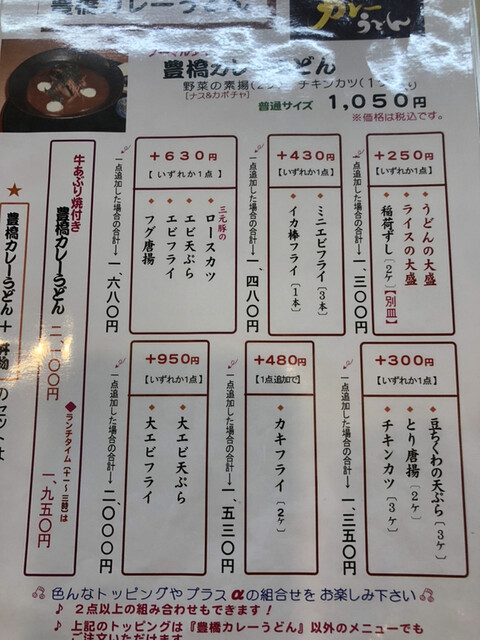 豊橋カレーうどん
カレー
うどん
豊橋カレーうどん
[ナス&カボチャ]
普通サイズ 1,050円
※価格は税込です。
+250円
【いずれか1点】
◆うどんの大盛
◆ライスの大盛
◆稲荷ずし〔2ヶ〕【別皿】
一点追加した場合の合計→一、三〇〇円
+430円
【いずれか1点】
◆ミニエビフライ〔3本〕
◆イカ棒フライ〔1本〕
一点追加した場合の合計→一、四八〇円
+630円
【いずれか1点】
三元豚の
◆ロースカツ
◆エビ天ぷら
◆エビフライ
◆フグ唐揚
一点追加した場合の合計→一、六八〇円
+300円
【いずれか1点】
◆豆ちくわの天ぷら〔3ヶ〕
◆とり唐揚〔2ヶ〕
◆チキンカツ〔3ヶ〕
一点追加した場合の合計→一、三五〇円
+480円
【1点追加で】
◆カキフライ〔2ヶ〕
一点追加した場合の合計→一、五三〇円
+950円
【いずれか1点】
◆大エビ天ぷら
◆大エビフライ
一点追加した場合の合計→二、〇〇〇円
牛あぶり焼付き
豊橋カレーうどん 二、一〇〇円
◆ランチタイム(十一〜三時)は
一、九五〇円
★豊橋カレーうどん+丼物のセットは
色んなトッピングやプラスαの組合せをお楽しみ下さい
♪ 2点以上の組み合わせもできます!
♪ 上記のトッピングは『豊橋カレーうどん』以外のメニューでも
ご注文いただけます